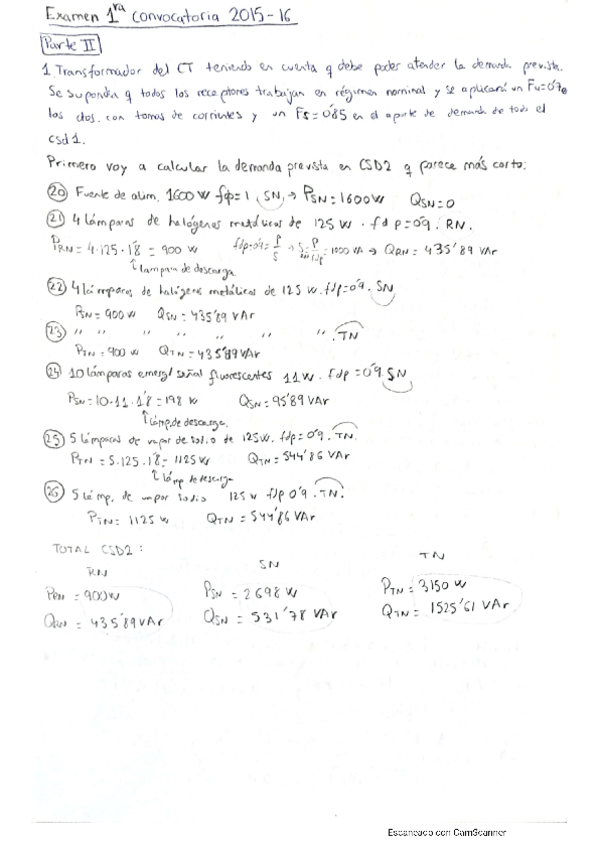 Examen 1ra Convocatoria 2015-16
Parte II
1 Transformador del CT teniendo en cuenta q debe poder atender la demanda prevista.
Se supondrá q todos los receptores trabajan en régimen nominal y se aplicará un Fu=0'7 en
los ctos. con tomas de corrientes y un Fs=0'85 en el aporte de demanda de todo el
csd1.
Primero voy a calcular la demanda prevista en CSD2 q parece más corto:
20 Fuente de alim. 1600 W fdp=1, SN, → PSN=1600W QSN=0
21 4 lámparas de halógenos metálicos de 125 W. fdp=0'9. RN.
PRN=4·125·1'8 = 900 W fdp=0'9= P/S → S=P/fdp=1000 VA → QRN= 435'89 VAr
↑ lampara de descarga.
22 4 lámparas de halógenos metálicos de 125 W. fdp=0'9. SN
PSN=900W QSN=435'89 VAr
23 " " " " " " ". TN
PTN=900W QTN=435'89VAr
24 10 lámparas emerg/señal fluorescentes 11W. fdp=0'9. SN
PSN=10·11·1'8=198 W QSN=95'89 VAr
↑ lámp. de descarga.
25 5 lámparas de vapor de sodio de 125W. fdp=0'9. TN.
PTN=5·125·1'8=1125W QTN=544'86 VAr
↑ lámp de descarga
26 5 lámp. de vapor sodio 125 W fdp 0'9. TN.
PTN= 1125W QTN=544'86 VAr
TOTAL CSD2:
RN SN TN
PRN=900W PSN=2698W PTN=3150W
QRN=435'89VAr QSN=531'78 VAr QTN=1525'61 VAr
Escaneado con CamScanner